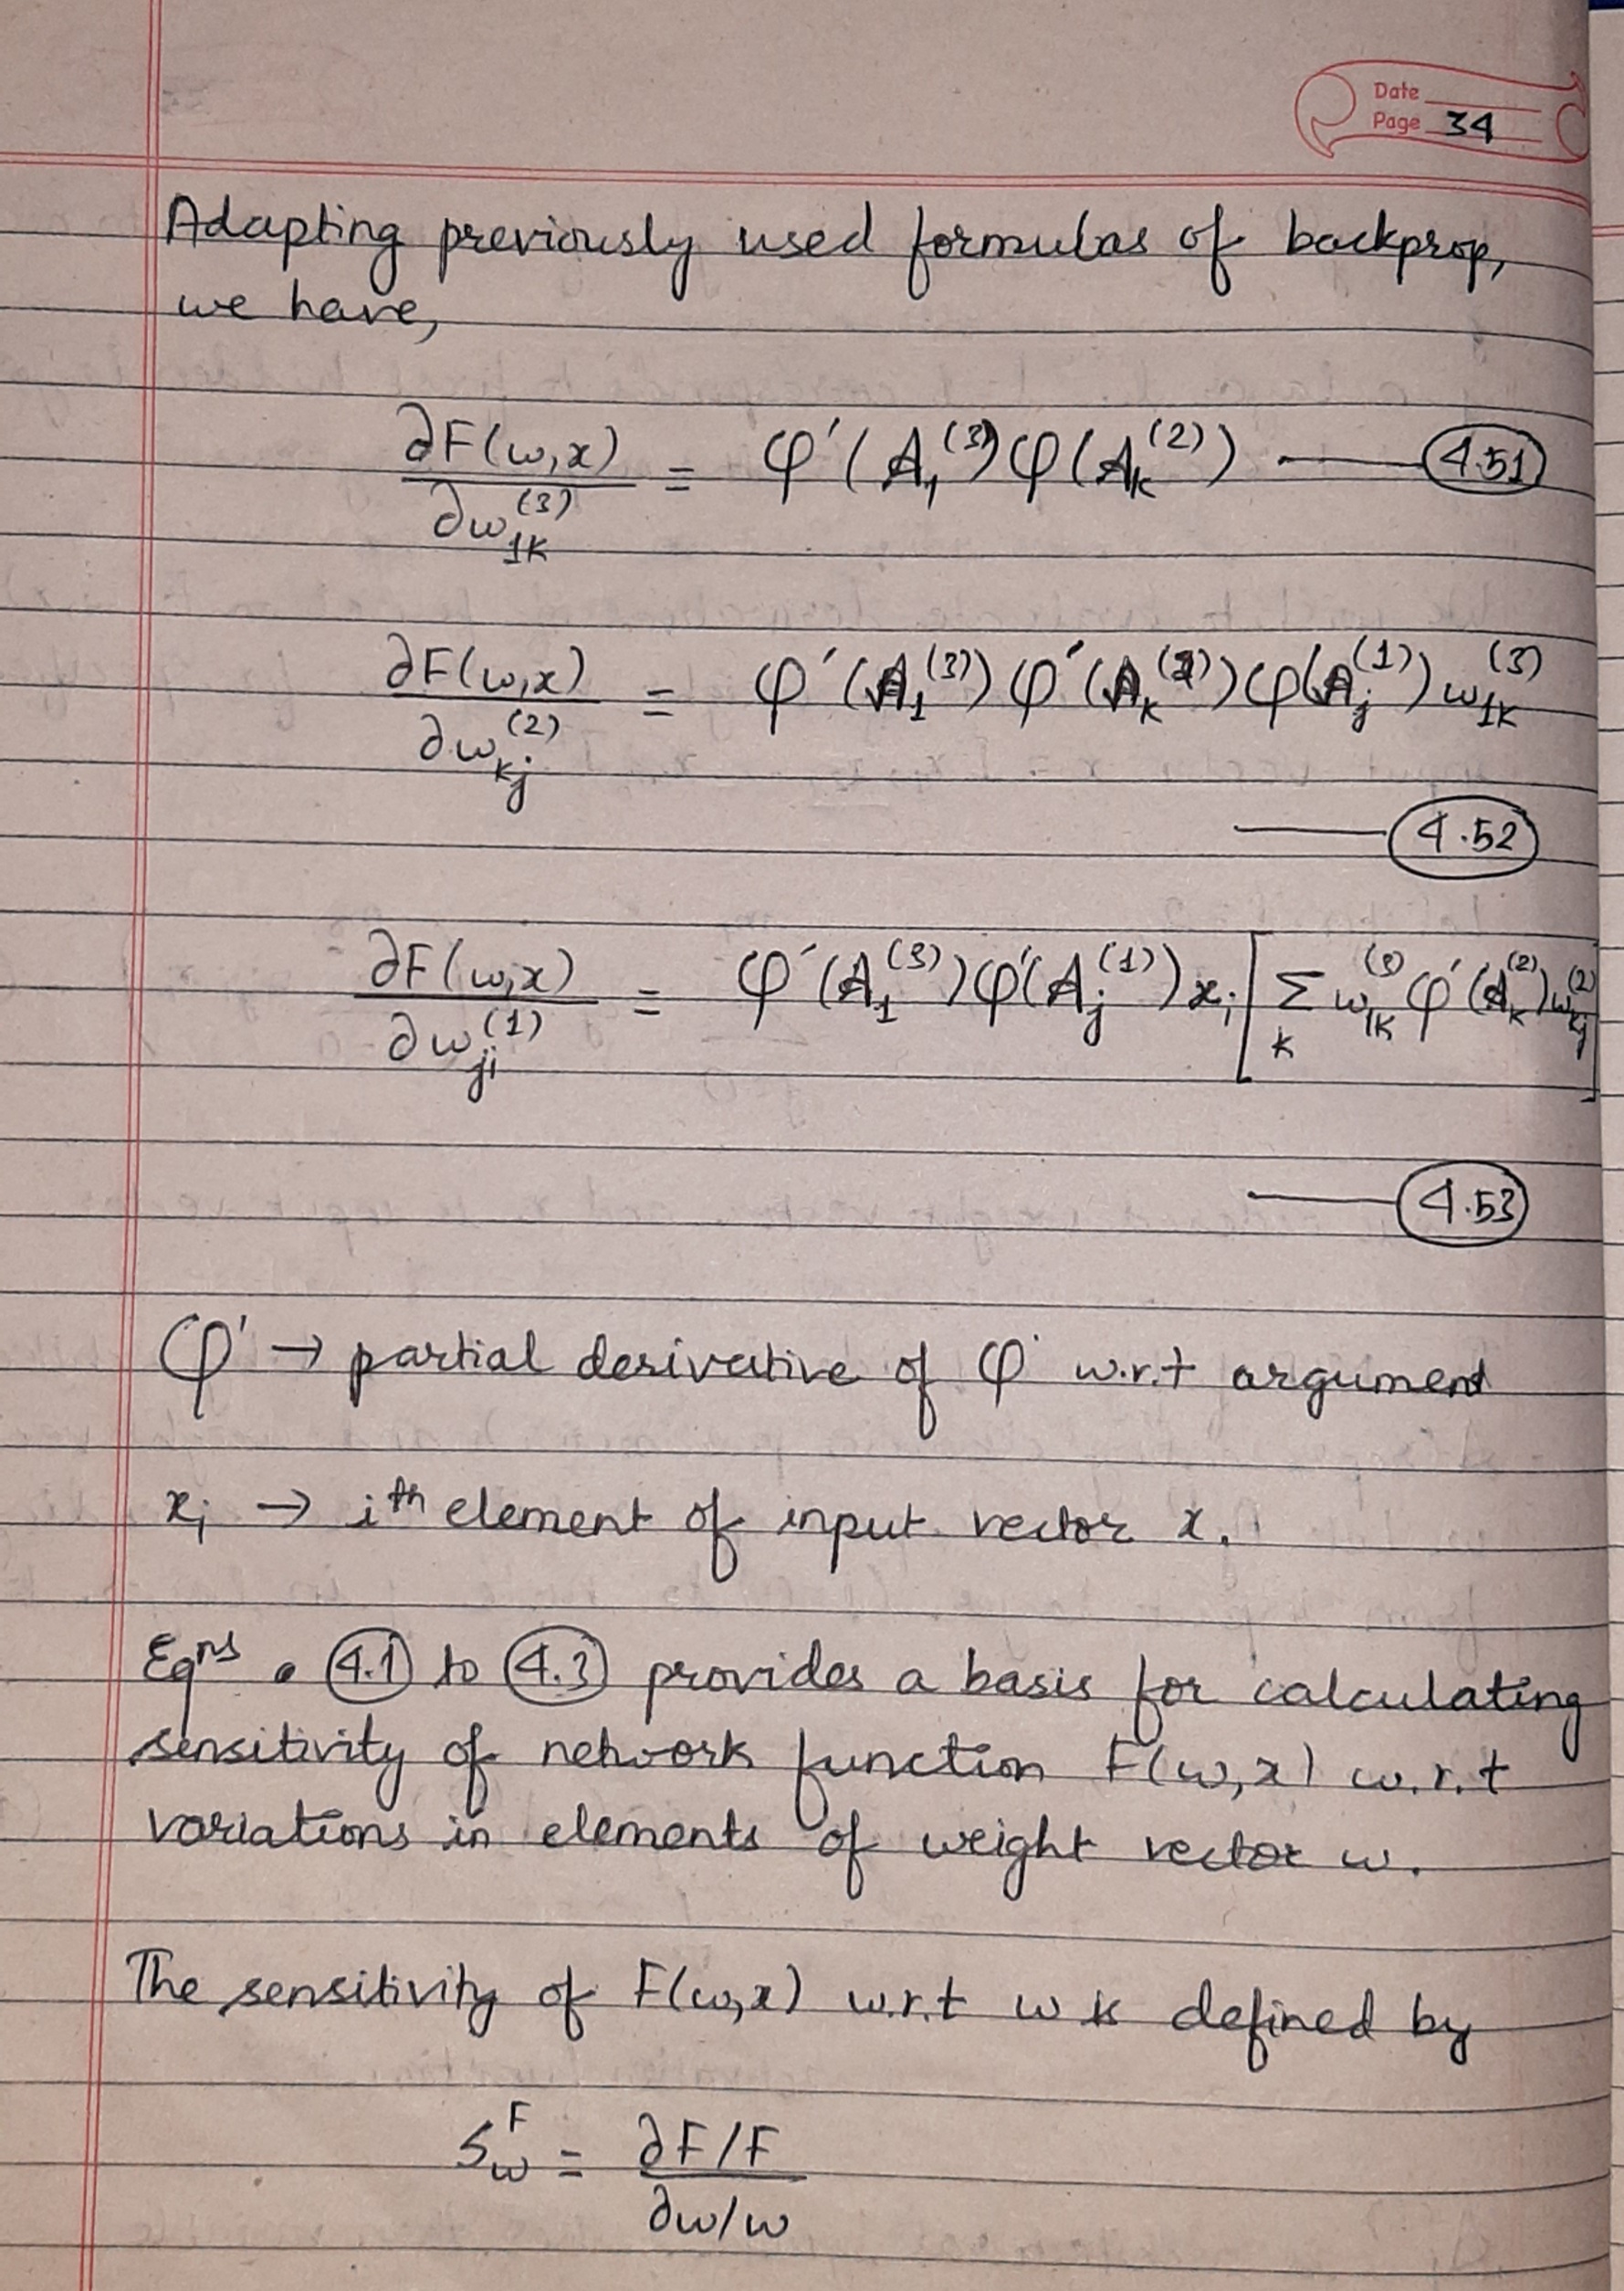 Date
Page 34
Adapting previously used formulas of backprop,
we have,
∂F(w,x) / ∂w₁ₖ⁽³⁾ = φ′(A₁⁽³⁾) φ(Aₖ⁽²⁾) — 4.51
∂F(w,x) / ∂wₖⱼ⁽²⁾ = φ′(A₁⁽³⁾) φ′(Aₖ⁽²⁾) φ(Aⱼ⁽¹⁾) w₁ₖ⁽³⁾
— 4.52
∂F(w,x) / ∂wⱼᵢ⁽¹⁾ = φ′(A₁⁽³⁾) φ′(Aⱼ⁽¹⁾) xᵢ [Σₖ w₁ₖ⁽³⁾ φ′(Aₖ⁽²⁾) wₖⱼ⁽²⁾]
— 4.53
φ′ → partial derivative of φ w.r.t argument
xᵢ → iᵗʰ element of input vector x.
Eqⁿˢ. 4.1 to 4.3 provides a basis for calculating
sensitivity of network function F(w,x) w.r.t
variations in elements of weight vector w.
The sensitivity of F(w,x) w.r.t w is defined by
S_w^F = ∂F/F / ∂w/w